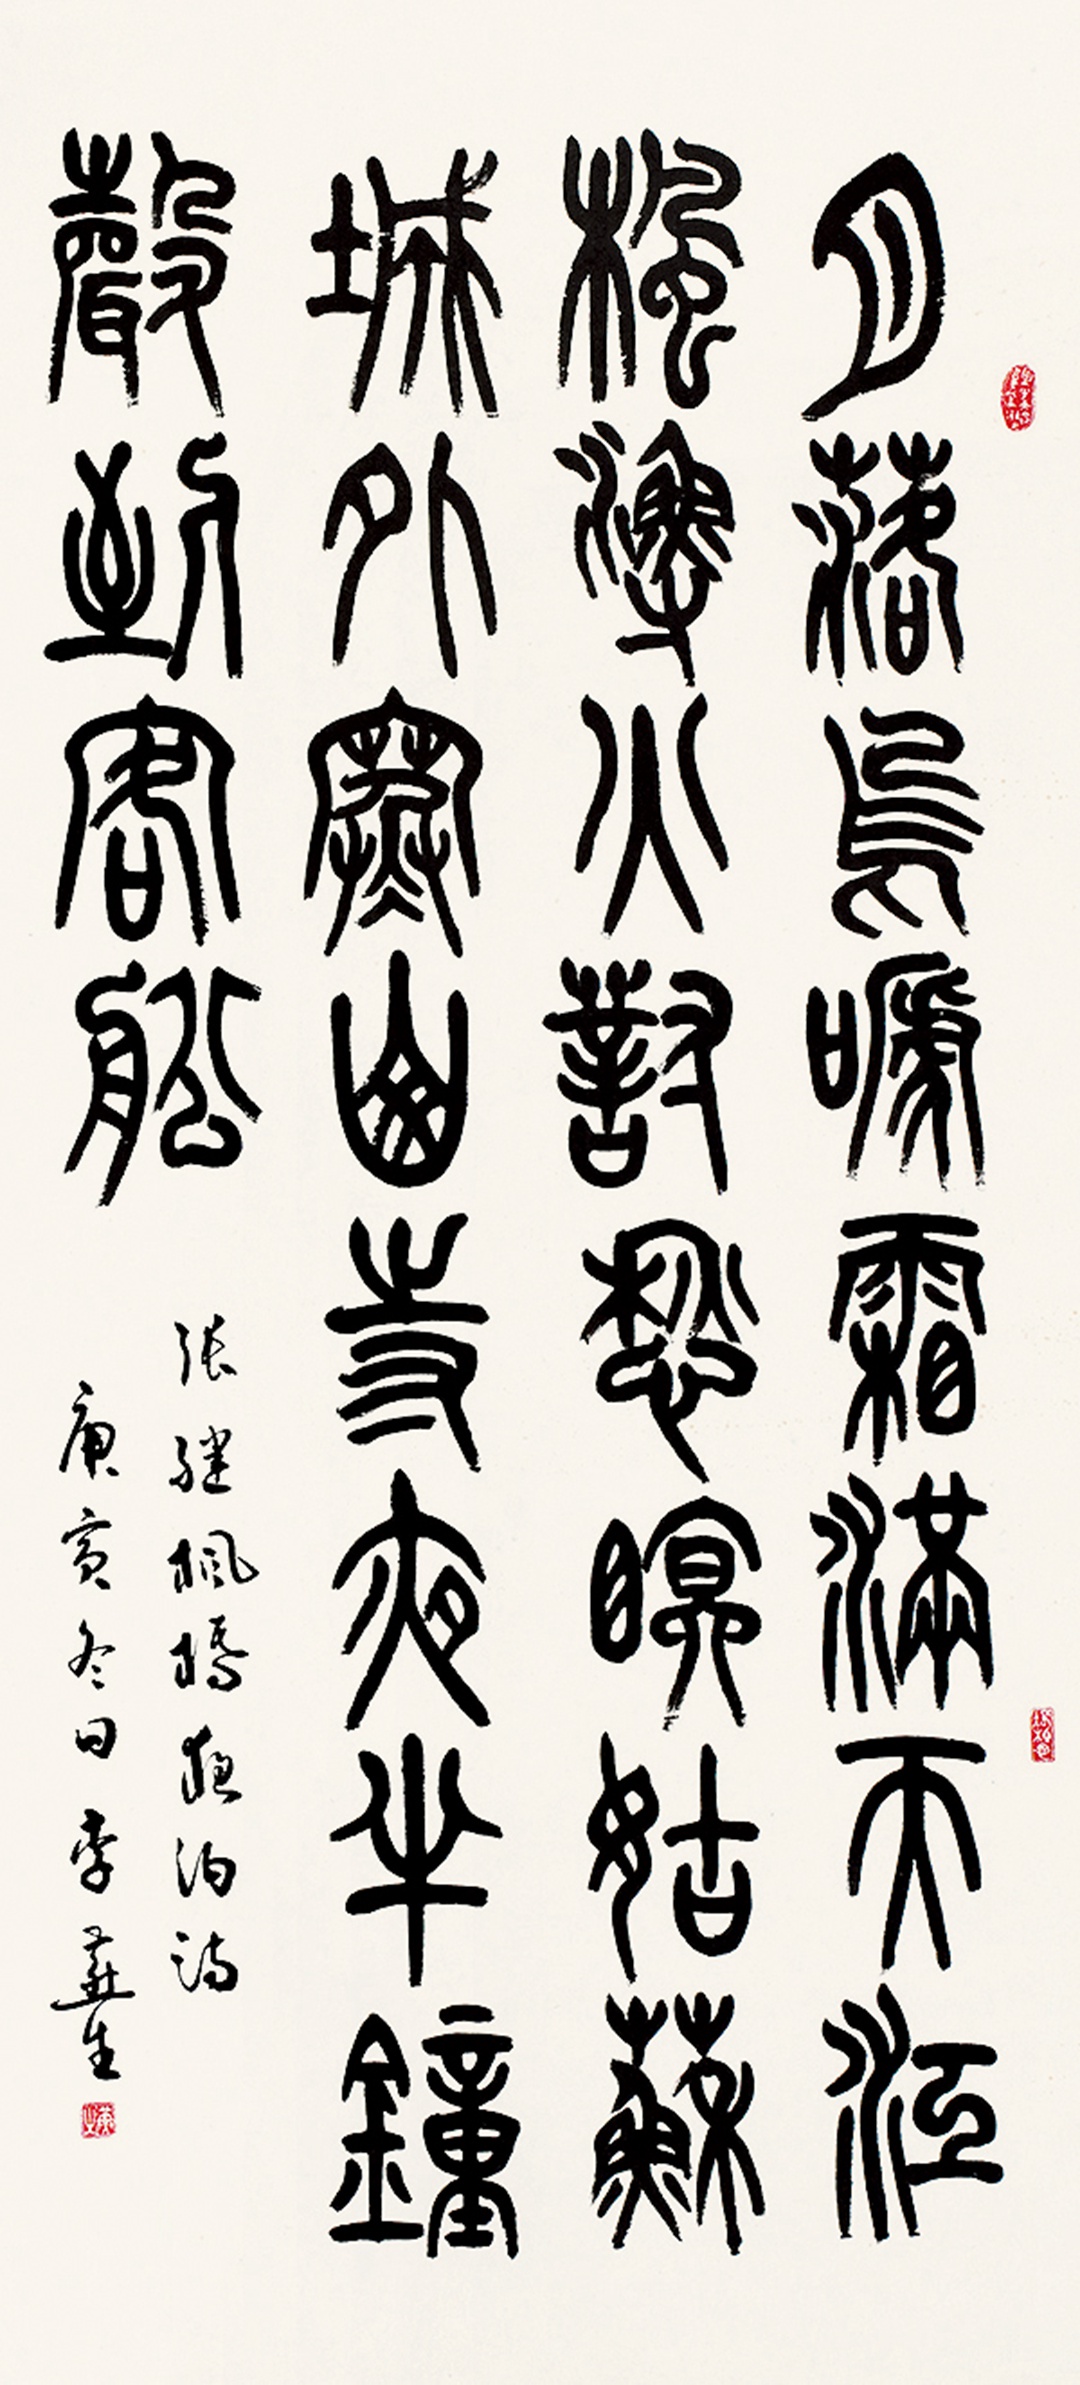 月落烏嗁霜滿天江
楓漁火對愁瞑姑蘇
城外寒山寺夜半鐘
聲到客船
張繼楓橋夜泊詩
庚寅冬日李燕生